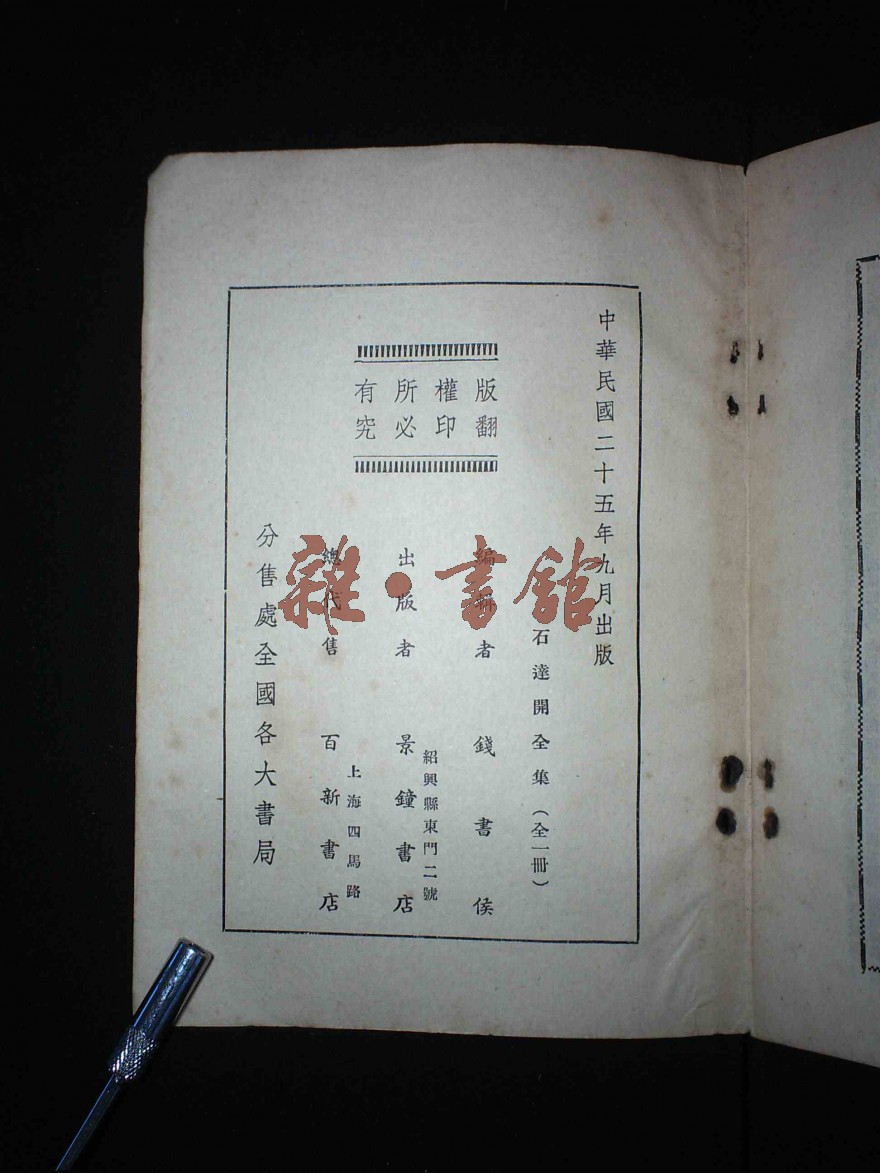 中華民國二十五年九月出版
石達開全集(全一冊)
版權所有
翻印必究
編輯者 錢書侯
紹興縣東門二號
出版者 景鐘書店
上海四馬路
總代售 百新書店
分售處全國各大書局
雜·書館